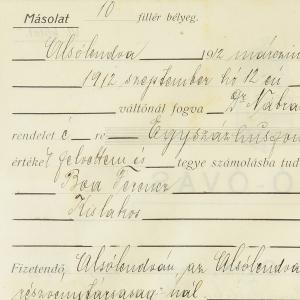 Másolat 10 fillér bélyeg.
Alsólendva 1912 márczius
1912 szeptember hó 12 én
váltónál fogva Dr Nabra
rendelet é re Egyszázhuszon
értékét gelvettem és tegye számolásba tud
Boa Ferencz
Kislakos
Fizetendő Alsólendván, az Alsólendva
részvénytársaság=nál.